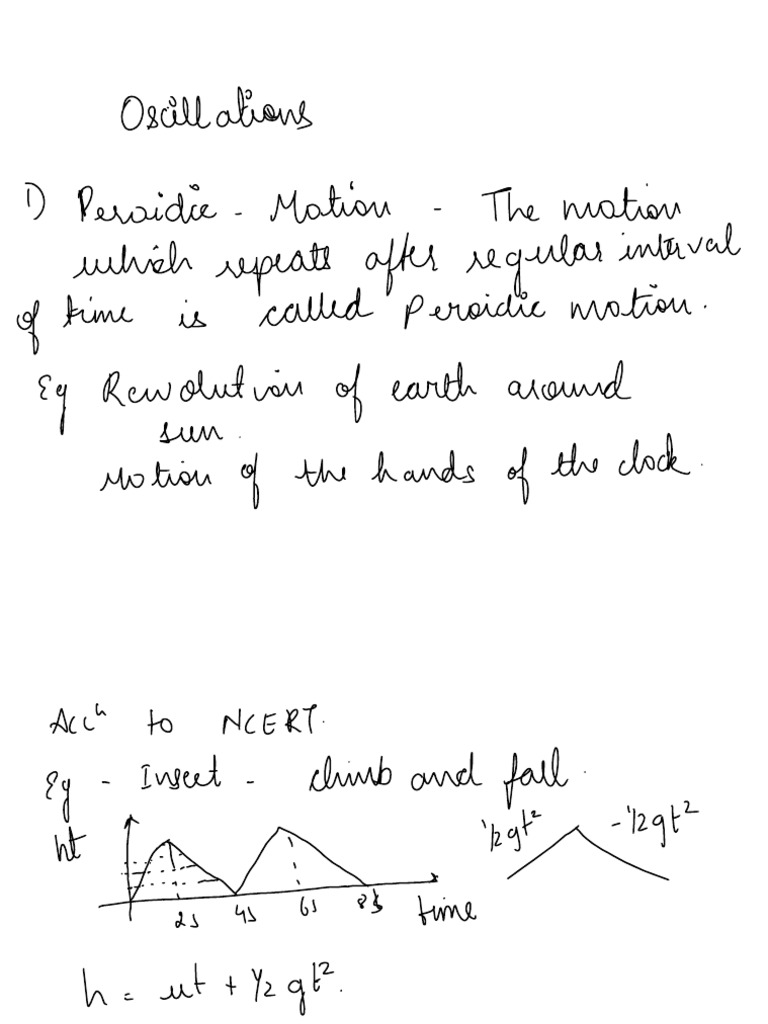 Oscillations
1) Peroidic - Motion - The motion
which repeats after regular interval
of time is called peroidic motion.
Eg Revolution of earth around
sun.
Motion of the hands of the clock.
Accⁿ to NCERT.
Eg - Insect - climb and fall.
ht
1/2gt²
-1/2gt²
2s 4s 6s 8s
time
h = ut + 1/2 gt².